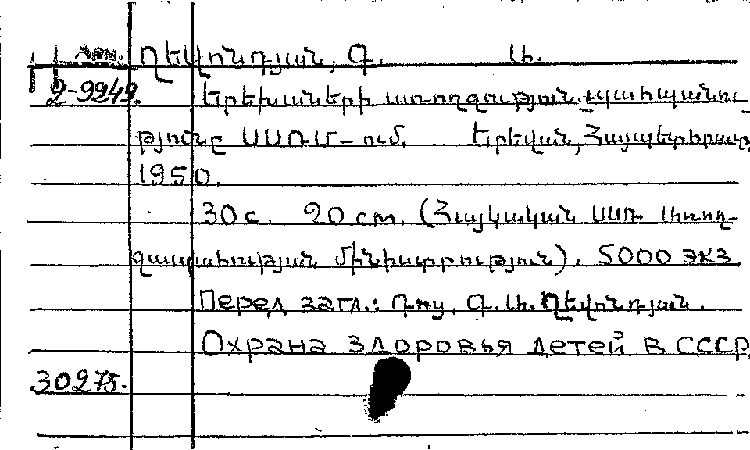 Арм. Ղեվոնդյան, Գ. Ա.
2-9249. Երեխաների առողջության պահպանու-
թյունը ՍՍՌՄ-ում. Երեվան, Հայպետհրատ,
1950.
30 с. 20 cm. (Հայկական ՍՍՌ Առող-
ջապահության մինիստրություն). 5000 экз
Перед загл.: Դոց. Գ. Ա. Ղեվոնդյան.
Охрана здоровья детей в СССР
30275.